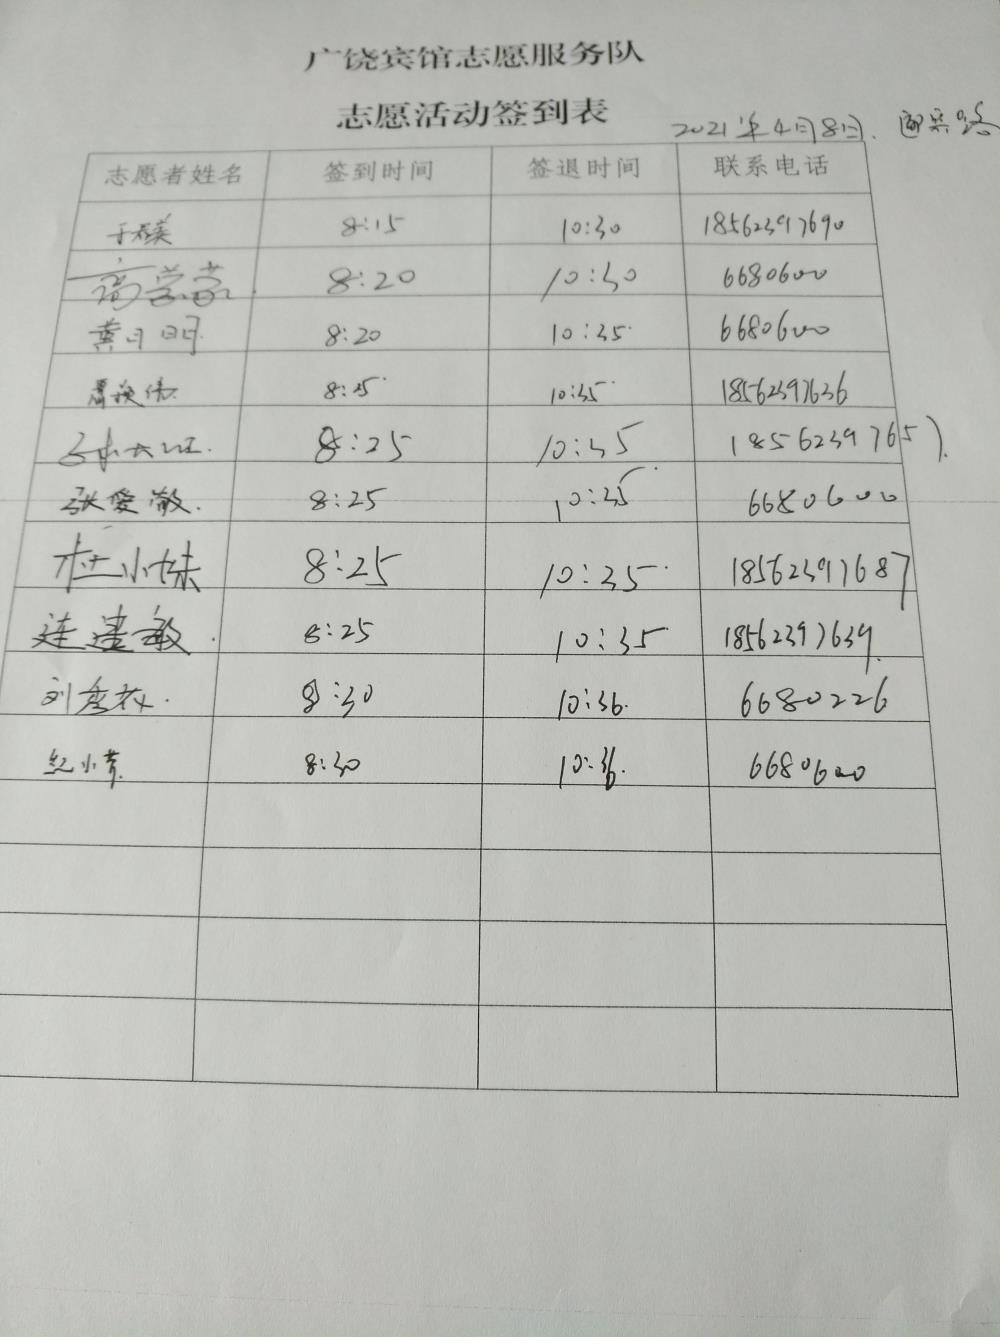 广饶宾馆志愿服务队
志愿活动签到表
2021年4月8日.
志愿者姓名 签到时间 签退时间 联系电话
8:15 10:30 18562397690
8:20 10:30 6680600
黄月明 8:20 10:35 6680600
8:25 10:35 18562397636
8:25 10:35 18562397657
张爱敏 8:25 10:35 6680600
杜小妹 8:25 10:35 18562397687
连建敏 8:25 10:35 18562397639
8:30 10:36 6680226
纪小芹 8:30 10:36 6680600